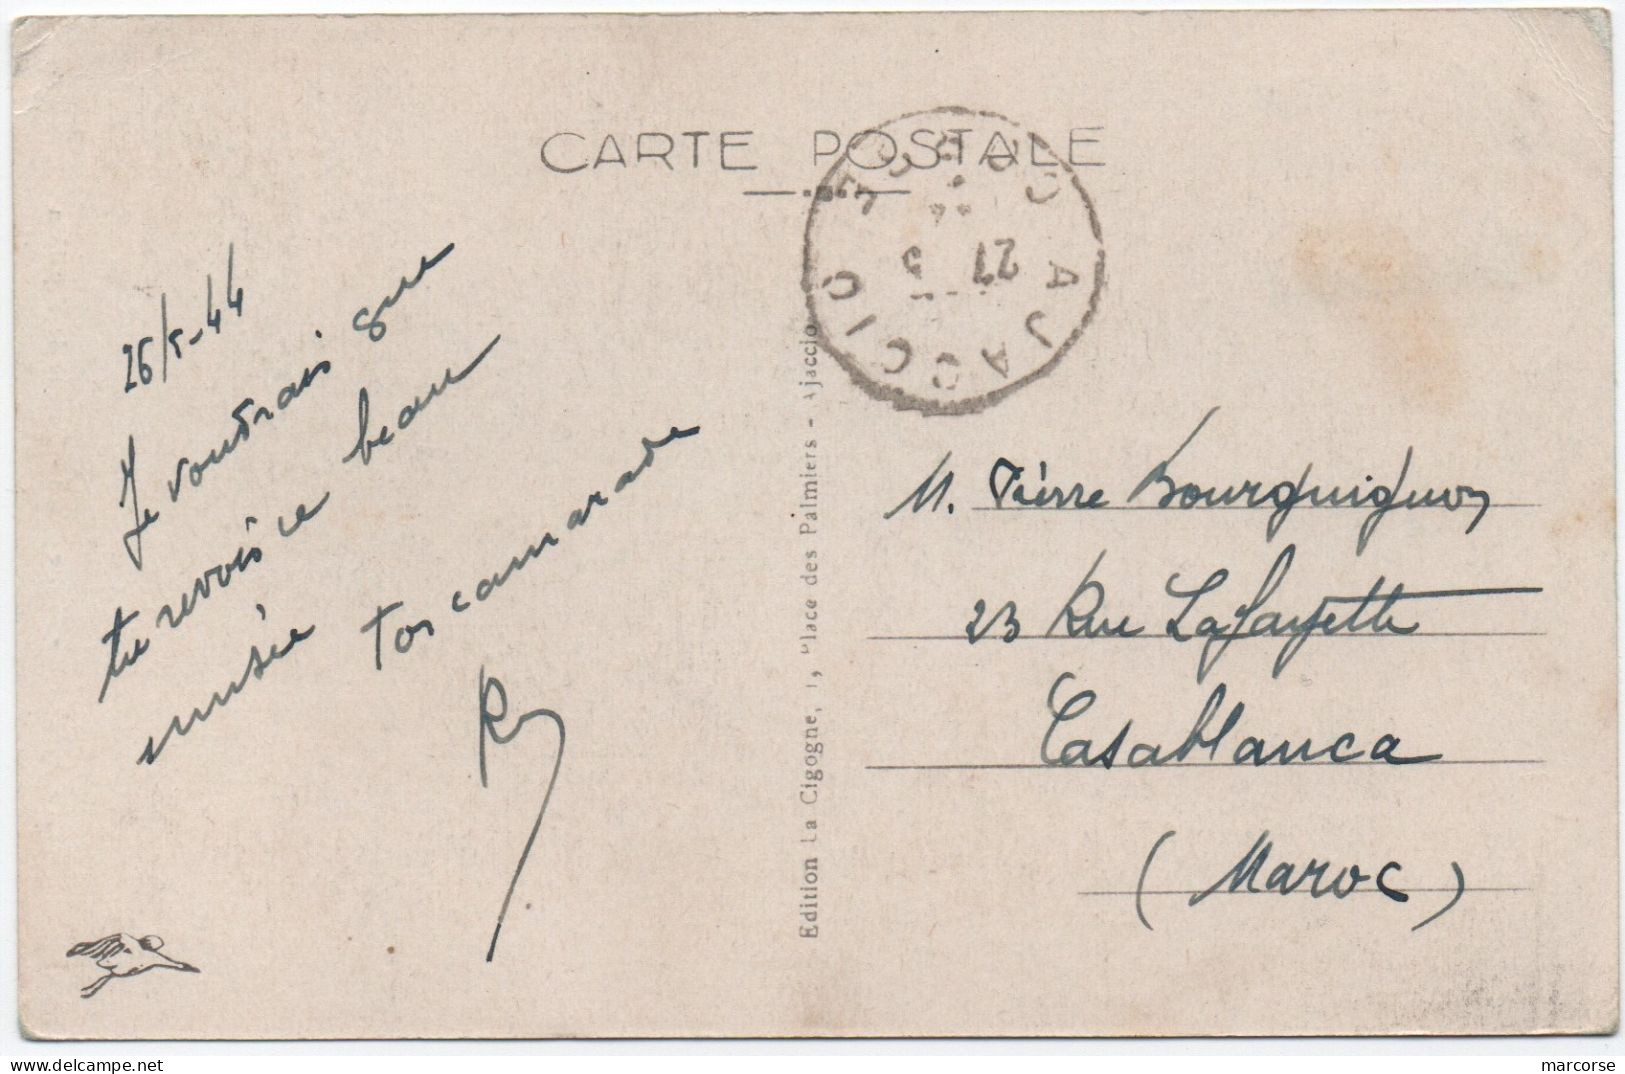 CARTE POSTALE
26/5-44
Je voudrais que
tu revois ce beau
musée
Ton camarade
M. Pierre Bourguignon
23 Rue Lafayette
Casablanca
(Maroc)
Edition La Cigogne, 1, Place des Palmiers - Ajaccio
AJACCIO
27 5
CORSE
delcampe.net
marcorse